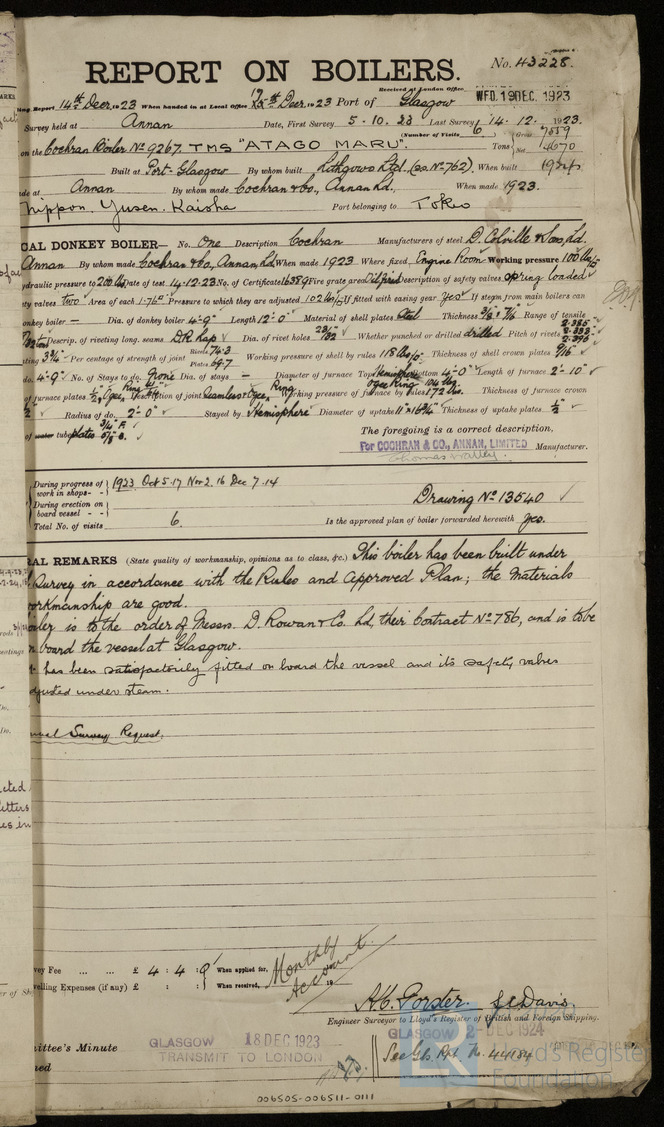 REPORT ON BOILERS.
No. 43228.
Received at London Office
WED. 19 DEC. 1923
Report 14th Decr. 1923 When handed in at Local Office Decr. 1923 Port of Glasgow
Survey held at Annan Date, First Survey 5.10.23 Last Survey 14.12.1923.
(Number of Visits 6)
on the Cochran Boiler No 9267. TMS "ATAGO MARU". Tons Gross 7559 Net 4670
Built at Port-Glasgow By whom built Lithgows Ltd. (No. 762). When built 1924
at Annan By whom made Cochran & Co., Annan Ltd. When made 1923.
Nippon Yusen Kaisha Port belonging to Tokio
CAL DONKEY BOILER— No. One Description Cochran Manufacturers of steel D. Colville & Sons, Ltd.
Annan By whom made Cochran & Co., Annan, Ltd When made 1923 Where fixed Engine Room Working pressure 100 lbs
ydraulic pressure to 200 lbs Date of test 14.12.23 No. of Certificate 16389 Fire grate area Oil fired Description of safety valves spring loaded
ty valves two Area of each 1.76 Pressure to which they are adjusted 102 lbs If fitted with easing gear Yes If steam from main boilers can
onkey boiler — Dia. of donkey boiler 4-9 Length 12-0 Material of shell plates steel Thickness Range of tensile
Descrip. of riveting long. seams D.R. lap Dia. of rivet holes Whether punched or drilled drilled Pitch of rivets 2.385 2.333 2.396
ating 3¾ Per centage of strength of joint Rivets 74.3 Plates 69.7 Working pressure of shell by rules 118 lbs Thickness of shell crown plates 9/16
do. 4-9 No. of Stays to do. None Dia. of stays — Diameter of furnace Top Hemisphere Bottom 4-0 Length of furnace 2-10
of furnace plates Description of joint Seamless Working pressure of furnace by rules 172 lbs. Thickness of furnace crown
Radius of do. 2-0 Stayed by Hemisphere Diameter of uptake Thickness of uptake plates ½
of water tube plates
The foregoing is a correct description,
For COCHRAN & CO., ANNAN, LIMITED Manufacturer.
During progress of work in shops - - 1923 Oct 5.17 Nov 2.16 Dec 7.14
During erection on board vessel - -
Total No. of visits 6.
Drawing No 13540
Is the approved plan of boiler forwarded herewith Yes.
RAL REMARKS (State quality of workmanship, opinions as to class, &c.) This boiler has been built under
Survey in accordance with the Rules and Approved Plan; the materials
workmanship are good.
oiler is to the order of Messrs. D. Rowan & Co. Ltd, their Contract No 786, and is to be
n board the vessel at Glasgow.
has been satisfactorily fitted on board the vessel and its safety valves
djusted under steam.
Survey Request.
vey Fee ... ... £ 4 : 4 : 0 When applied for, Monthly Account
velling Expenses (if any) £ : : When received, 19
A.C. Forster. J.C. Davis.
Engineer Surveyor to Lloyd's Register of British and Foreign Shipping.
ittee's Minute
GLASGOW 18 DEC 1923
TRANSMIT TO LONDON
GLASGOW 2 - DEC 1924
See Gls. Rpt. No. 44184
Lloyd's Register
Foundation
006505-006511-0111